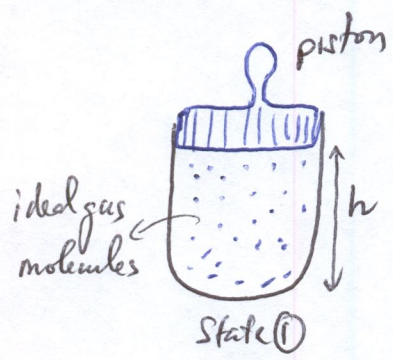 piston
ideal gas
molecules
h
State ①